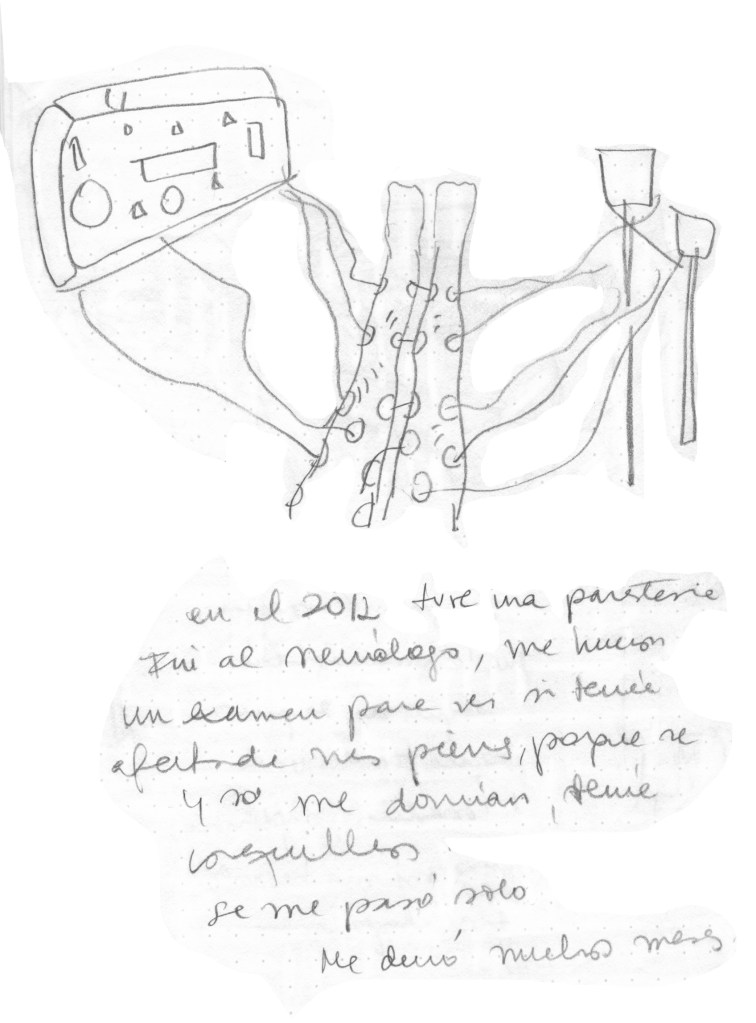 en el 2012 tuve una parestesia
Fui al neurólogo, me hicieron
un examen para ver si tenía
afectada mis piernas, porque se
y so me dormían, tenía
cosquilleos.
se me pasó solo
Me duró muchos meses